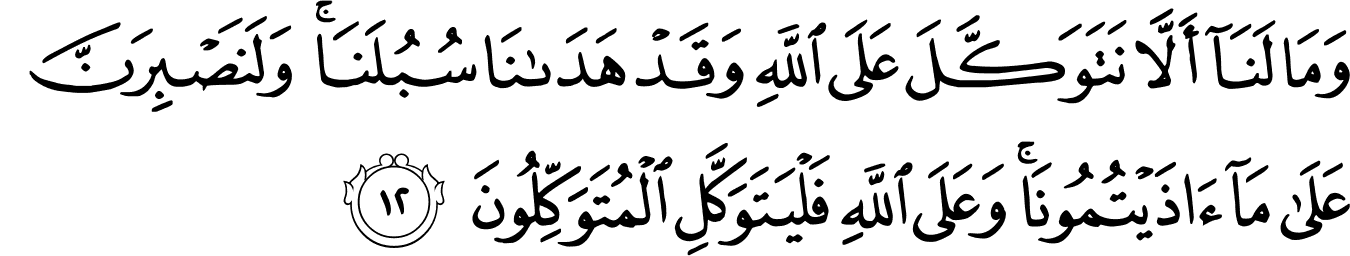 وَمَا لَنَآ أَلَّا نَتَوَكَّلَ عَلَى ٱللَّهِ وَقَدْ هَدَىٰنَا سُبُلَنَا ۚ وَلَنَصْبِرَنَّ
عَلَىٰ مَآ ءَاذَيْتُمُونَا ۚ وَعَلَى ٱللَّهِ فَلْيَتَوَكَّلِ ٱلْمُتَوَكِّلُونَ ١٢